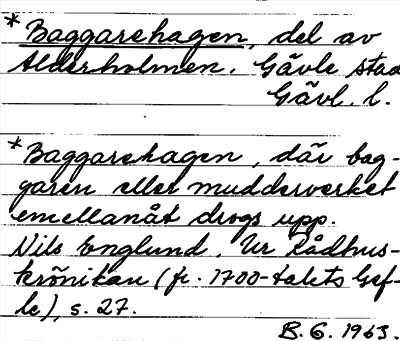 * Baggarehagen, del av
Alderholmen. Gävle stad
Gävl. l.
* Baggarehagen, där bag-
garen eller mudderverket
emellanåt drogs upp.
Nils Englund. Ur Rådhus-
krönikan (fr. 1700-talets Gef-
le), s. 27.
B. G. 1963.